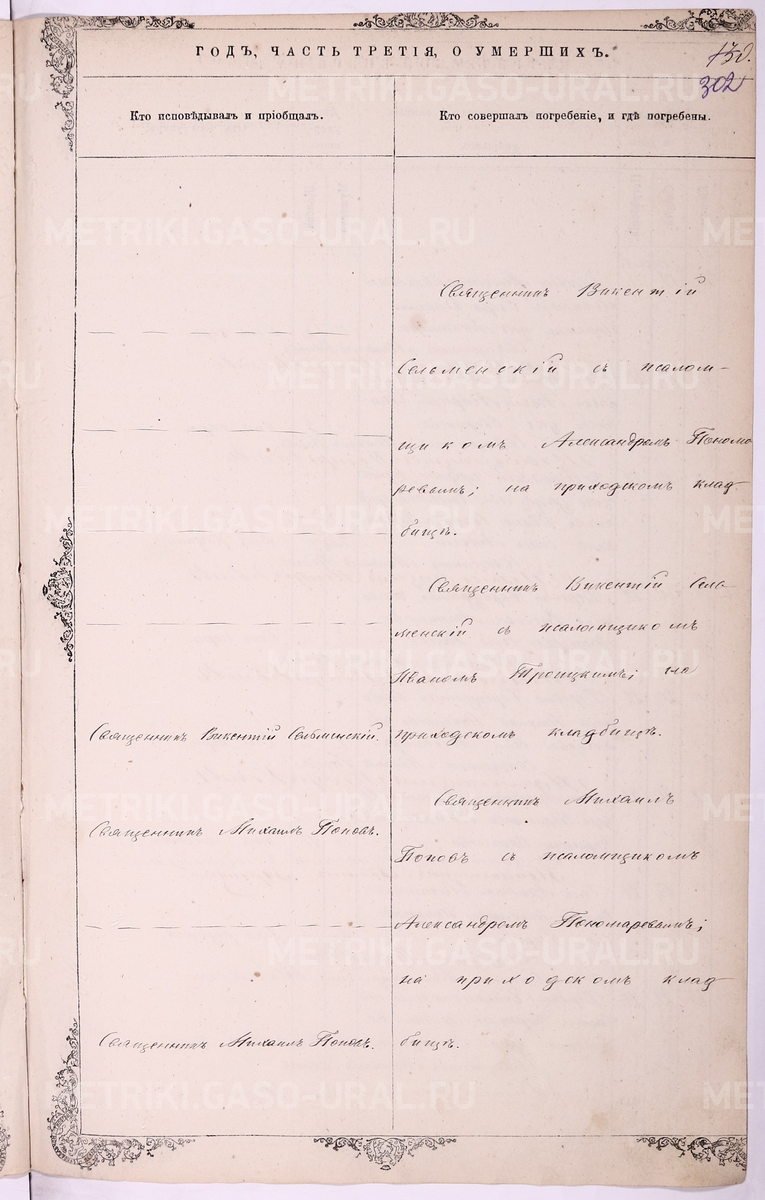 ГОДЪ, ЧАСТЬ ТРЕТІЯ, О УМЕРШИХЪ.
302
Кто исповѣдывалъ и пріобщалъ.
Кто совершалъ погребеніе, и гдѣ погребены.
Священникъ Викентій Сельменскій.
Священникъ Михаилъ Поповъ.
Священникъ Михаилъ Поповъ.
Священникъ Викентій
Сельменскій съ псалом-
щикомъ Александромъ Понома
ревымъ; на приходскомъ клад
бищѣ.
Священникъ Викентій Сель
менскій съ псаломщикомъ
Иваномъ Троицкимъ; на
приходскомъ кладбищѣ.
Священникъ Михаилъ
Поповъ съ псаломщикомъ
Александромъ Пономаревымъ;
на приходскомъ клад
бищѣ.
METRIKI.GASO-URAL.RU